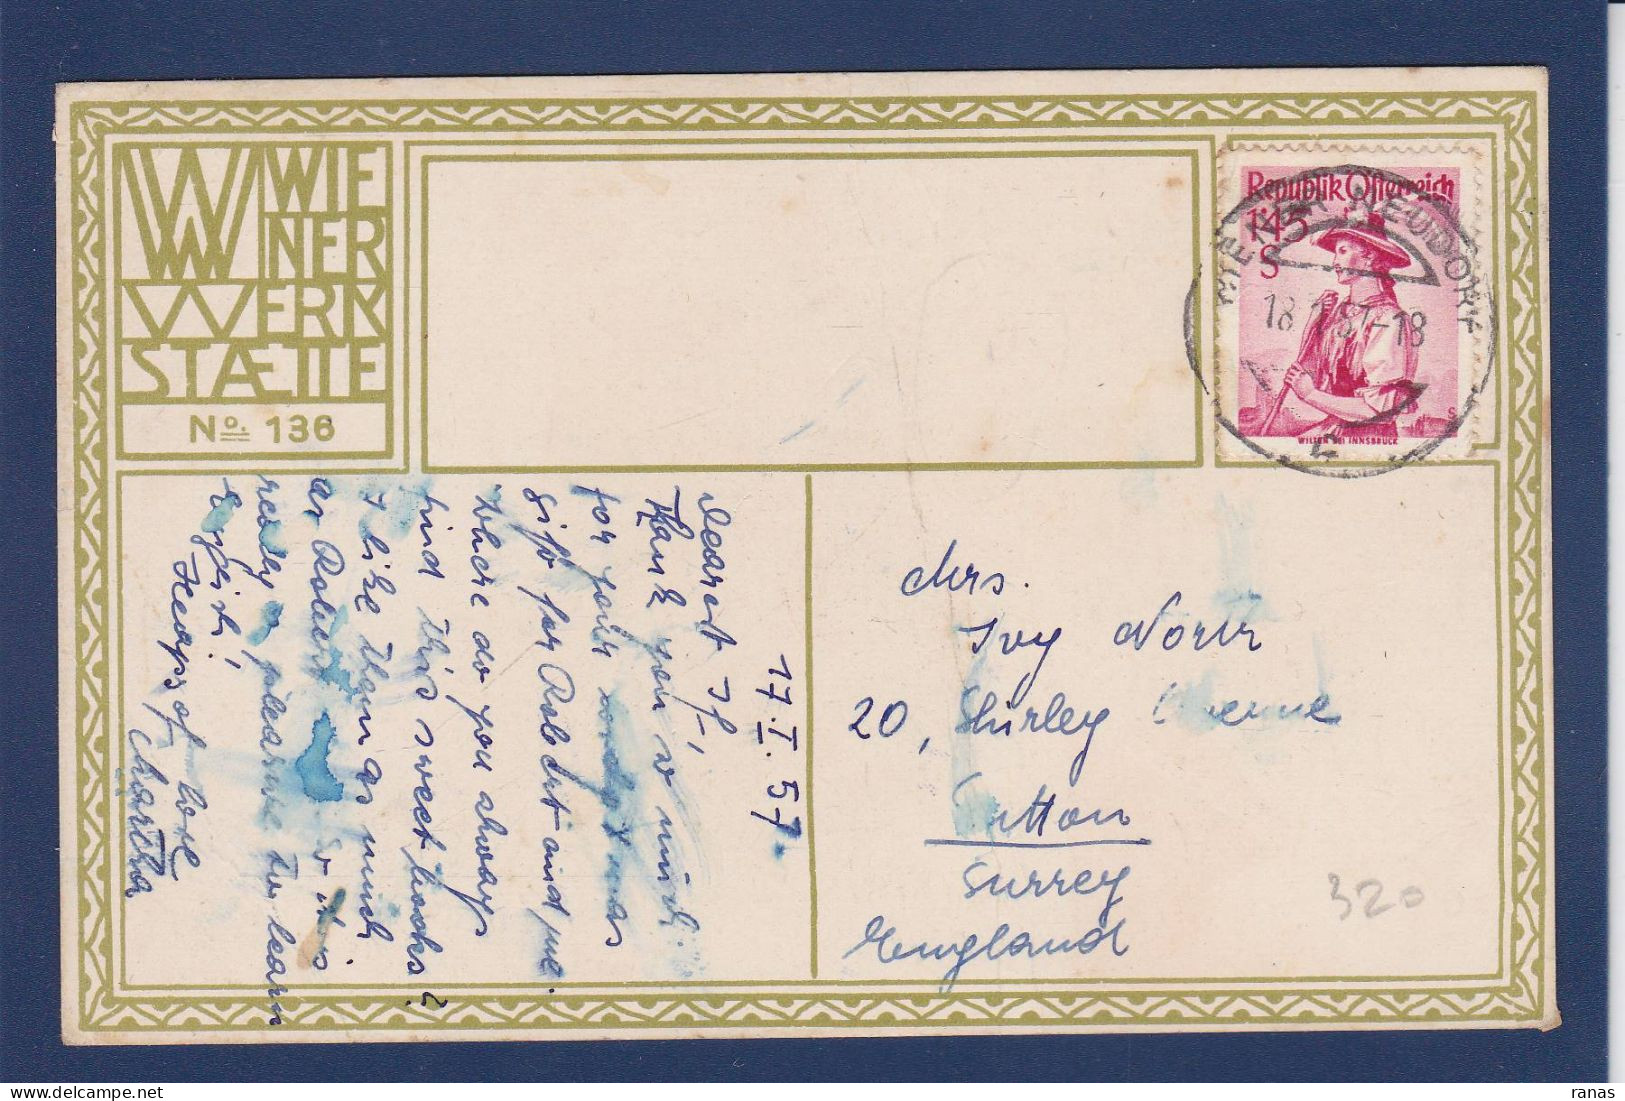 WW WIE
NER
WERK
STÆTTE
No. 136
Republik Österreich
1'45
S
WILTEN BEI INNSBRUCK
WIENER NEUDORF
18.1.57-18
17.I.57.
Dearest If,
Thank you so much
for your lovely Xmas
gift for Robert and me.
Where do you always
find this sweet books?
I like them as much
as Robert. So it is
really a pleasure to learn
English!
Heaps of love
Martha
Mrs.
Ivy North
20, Shirley Avenue
Sutton
Surrey
England
320
ranas